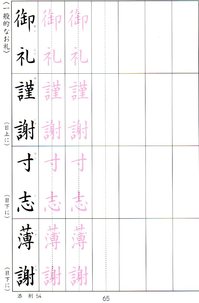 (一般的なお礼)
御礼
御礼
御礼
(目上に)
謹謝
謹謝
謹謝
(目下に)
寸志
寸志
寸志
(目下に)
薄謝
薄謝
薄謝
65